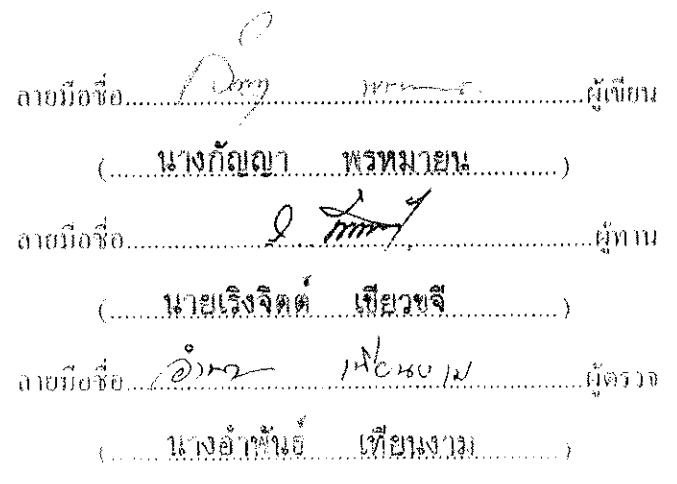 ลายมือชื่อ..........ผู้เขียน
(......นางกัญญา พรหมายน............)
ลายมือชื่อ..........ผู้ทาน
(........นายเริงจิตต์ เขียวขจี..............)
ลายมือชื่อ...อำพัน เทียนงาม..........ผู้ตรวจ
(........นางอำพันธ์ เทียนงาม..........)